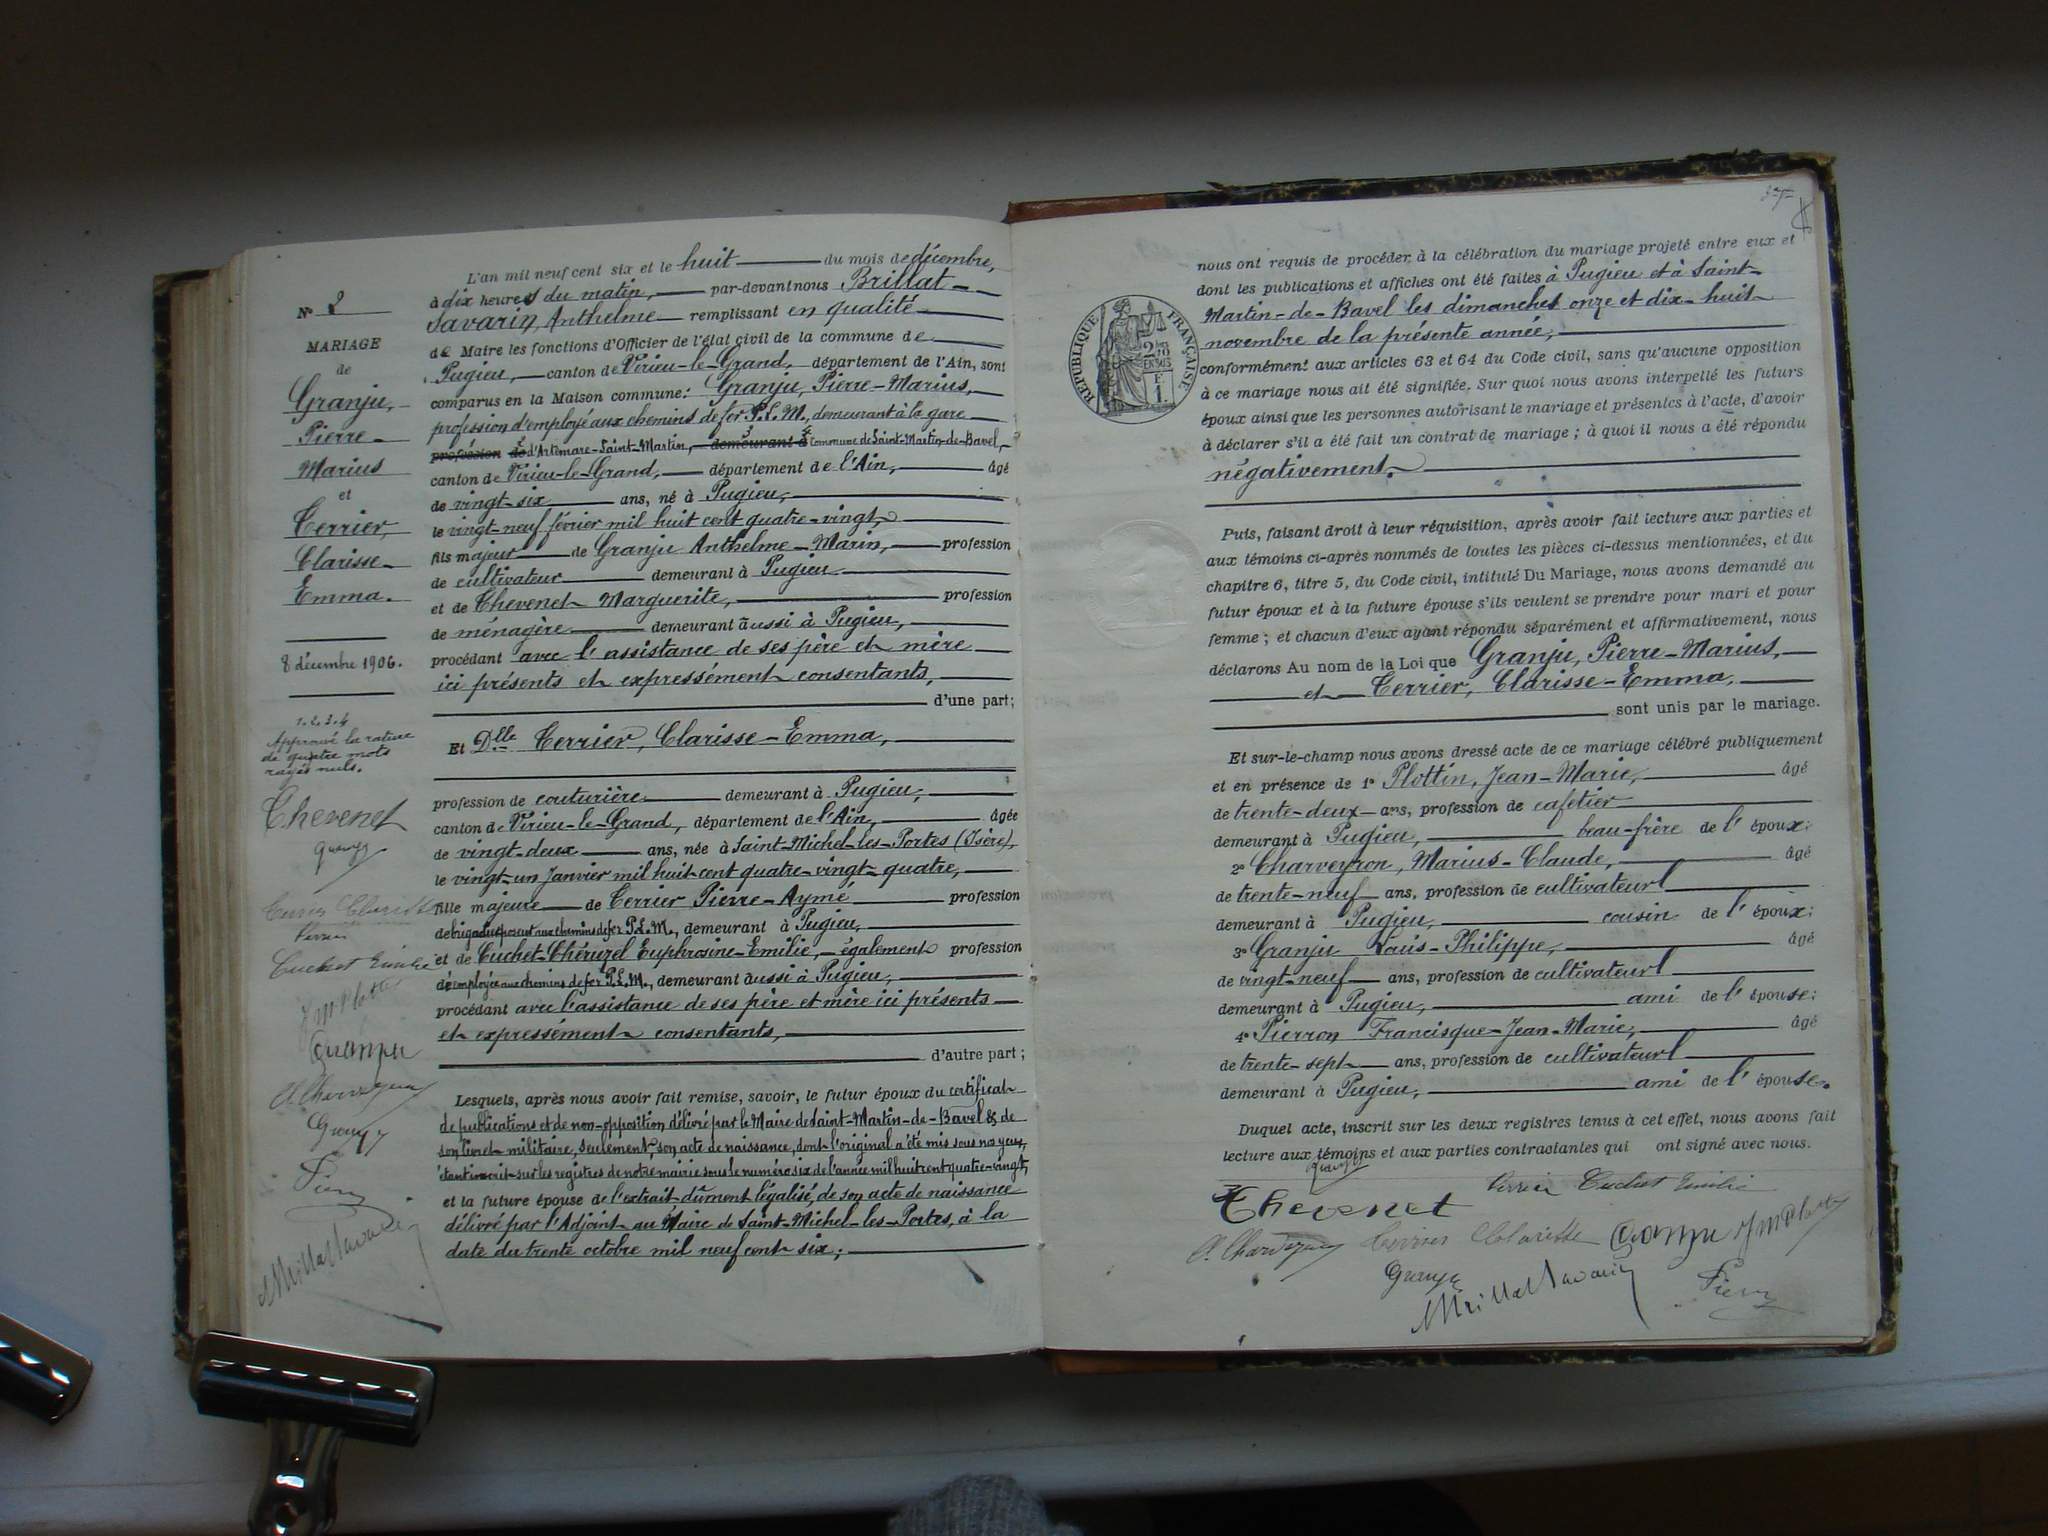 N° 2
MARIAGE
de
Granju,
Pierre-
Marius
et
Terrier,
Clarisse-
Emma.
8 décembre 1906.
1. 2. 3. 4
Approuvé la rature
de quatre mots
rayés nuls.
Chevenet
Terrier Clarisse
Terrier
Cuchet Emilie
J M Plottin
Granju
C. Charveyron
Granju
L'an mil neuf cent six et le huit du mois de décembre,
à dix heures du matin, par-devant nous Brillat-
Savarin, Anthelme remplissant en qualité
de Maire les fonctions d'Officier de l'état civil de la commune de
Pugieu, canton de Virieu-le-Grand, département de l'Ain, sont
comparus en la Maison commune: Granju, Pierre-Marius,
profession d'employé aux chemins de fer P.L.M., demeurant à la gare
profession de d'Artemare-Saint-Martin, demeurant à Commune de Saint-Martin-de-Bavel,
canton de Virieu-le-Grand, département de l'Ain, âgé
de vingt-six ans, né à Pugieu,
le vingt-neuf février mil huit cent quatre-vingt,
fils majeur de Granju Anthelme-Marin, profession
de cultivateur demeurant à Pugieu
et de Chevenet Marguerite, profession
de ménagère demeurant aussi à Pugieu,
procédant avec l'assistance de ses père et mère
ici présents et expressément consentants,
d'une part;
Et Delle Terrier, Clarisse-Emma,
profession de couturière demeurant à Pugieu,
canton de Virieu-le-Grand, département de l'Ain, âgée
de vingt-deux ans, née à Saint-Michel-les-Portes (Isère),
le vingt-un Janvier mil huit cent quatre-vingt-quatre,
fille majeure de Terrier Pierre-Aymé profession
de brigadier poseur aux chemins de fer P.L.M., demeurant à Pugieu,
et de Cuchet-Chéruzel Euphrosine-Emilie, également profession
d'employée aux chemins de fer P.L.M., demeurant aussi à Pugieu,
procédant avec l'assistance de ses père et mère ici présents
et expressément consentants,
d'autre part;
Lesquels, après nous avoir fait remise, savoir, le futur époux du certificat
de publications et de non-opposition délivré par le Maire de Saint-Martin-de-Bavel & de
son livret militaire, seulement, son acte de naissance, dont l'original a été mis sous nos yeux,
étant inscrit sur les registres de notre mairie sous le numéro six de l'année mil huit cent quatre-vingt,
et la future épouse de l'extrait dûment légalisé, de son acte de naissance
délivré par l'Adjoint au Maire de Saint-Michel-les-Portes, à la
date du trente octobre mil neuf cent six;
37
nous ont requis de procéder à la célébration du mariage projeté entre eux et
dont les publications et affiches ont été faites à Pugieu et à Saint-
Martin-de-Bavel les dimanches onze et dix-huit
novembre de la présente année,
conformément aux articles 63 et 64 du Code civil, sans qu'aucune opposition
à ce mariage nous ait été signifiée. Sur quoi nous avons interpellé les futurs
époux ainsi que les personnes autorisant le mariage et présentes à l'acte, d'avoir
à déclarer s'il a été fait un contrat de mariage; à quoi il nous a été répondu
négativement.
RÉPUBLIQUE FRANÇAISE
Puis, faisant droit à leur réquisition, après avoir fait lecture aux parties et
aux témoins ci-après nommés de toutes les pièces ci-dessus mentionnées, et du
chapitre 6, titre 5, du Code civil, intitulé Du Mariage, nous avons demandé au
futur époux et à la future épouse s'ils veulent se prendre pour mari et pour
femme; et chacun d'eux ayant répondu séparément et affirmativement, nous
déclarons Au nom de la Loi que Granju, Pierre-Marius,
et Terrier, Clarisse-Emma,
sont unis par le mariage.
Et sur-le-champ nous avons dressé acte de ce mariage célébré publiquement
et en présence de 1° Plottin, Jean-Marie, âgé
de trente-deux ans, profession de cafetier
demeurant à Pugieu, beau-frère de l'époux;
2° Charveyron, Marius-Claude, âgé
de trente-neuf ans, profession de cultivateur
demeurant à Pugieu, cousin de l'époux;
3° Granju Louis-Philippe, âgé
de vingt-neuf ans, profession de cultivateur
demeurant à Pugieu, ami de l'épouse;
4° Pierron Francisque-Jean-Marie, âgé
de trente-sept ans, profession de cultivateur
demeurant à Pugieu, ami de l'épouse.
Duquel acte, inscrit sur les deux registres tenus à cet effet, nous avons fait
lecture aux témoins et aux parties contractantes qui ont signé avec nous.
Granju
Chevenet Terrier Cuchet Emilie
C. Charveyron Terrier Clarisse Granju J M Plottin
Granju
A Brillat Savarin